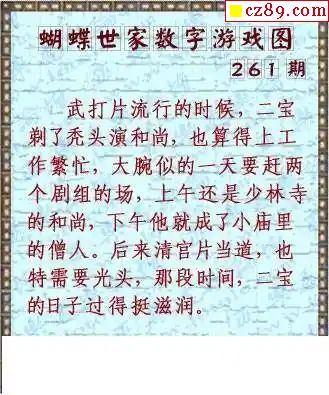 cz89.com
蝴蝶世家数字游戏图
261期
武打片流行的时候，二宝
剃了秃头演和尚，也算得上工
作繁忙，大腕似的一天要赶两
个剧组的场，上午还是少林寺
的和尚，下午他就成了小庙里
的僧人。后来清宫片当道，也
特需要光头，那段时间，二宝
的日子过得挺滋润。